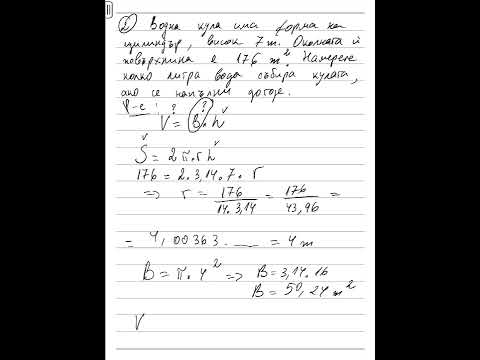 2) Водна кула има форма на
цилиндър, висок 7 m. Околната ѝ
повърхнина е 176 m². Намерете
колко литра вода събира кулата,
ако се напълни догоре.
Р-е: ? ?
V = B.h
S = 2π.r.h
176 = 2.3,14.7.r
=> r = 176/14.3,14 = 176/43,96 =
= 4,00363... = 4 m
B = π.4² => B = 3,14.16
B = 50,24 m²
V